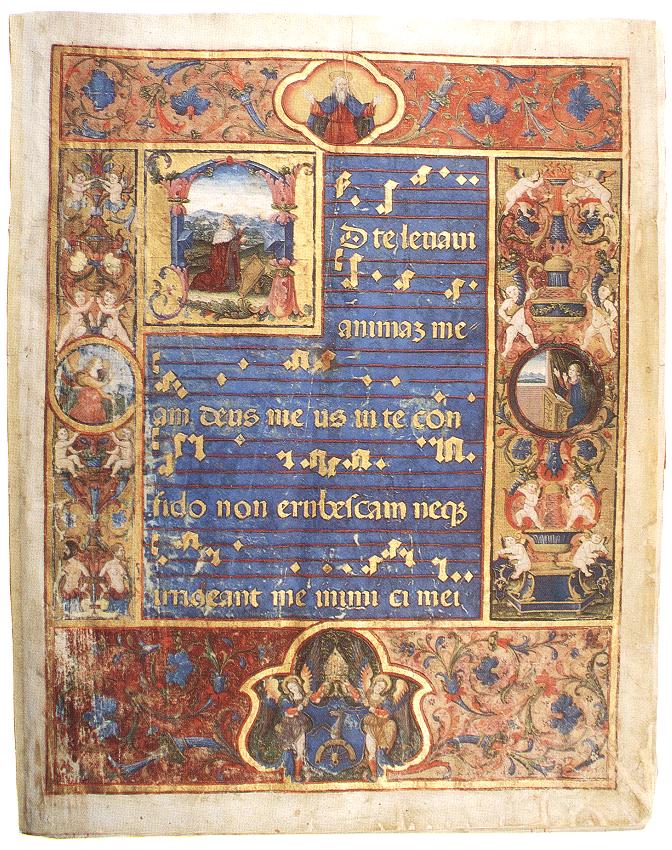 AD te leuaui
animaz me-
am deus me us in te con
fido non erubescam neqz
irrideant me inimi ci mei